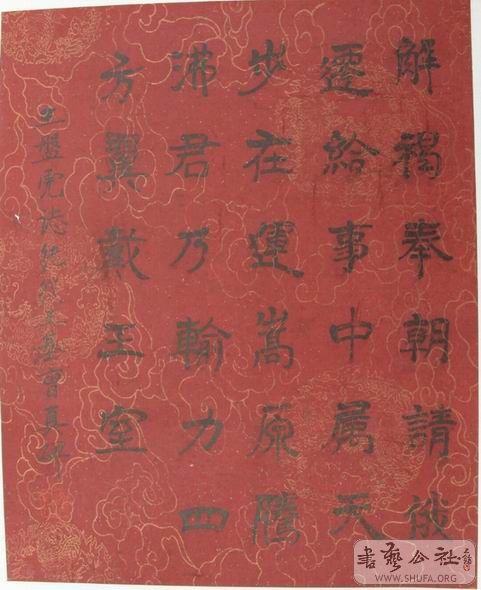 解褐奉朝請俄
遷給事中属天
步在運嵩原騰
沸君乃輸力四
方翼戴王室
書藝公社
WWW.SHUFA.ORG